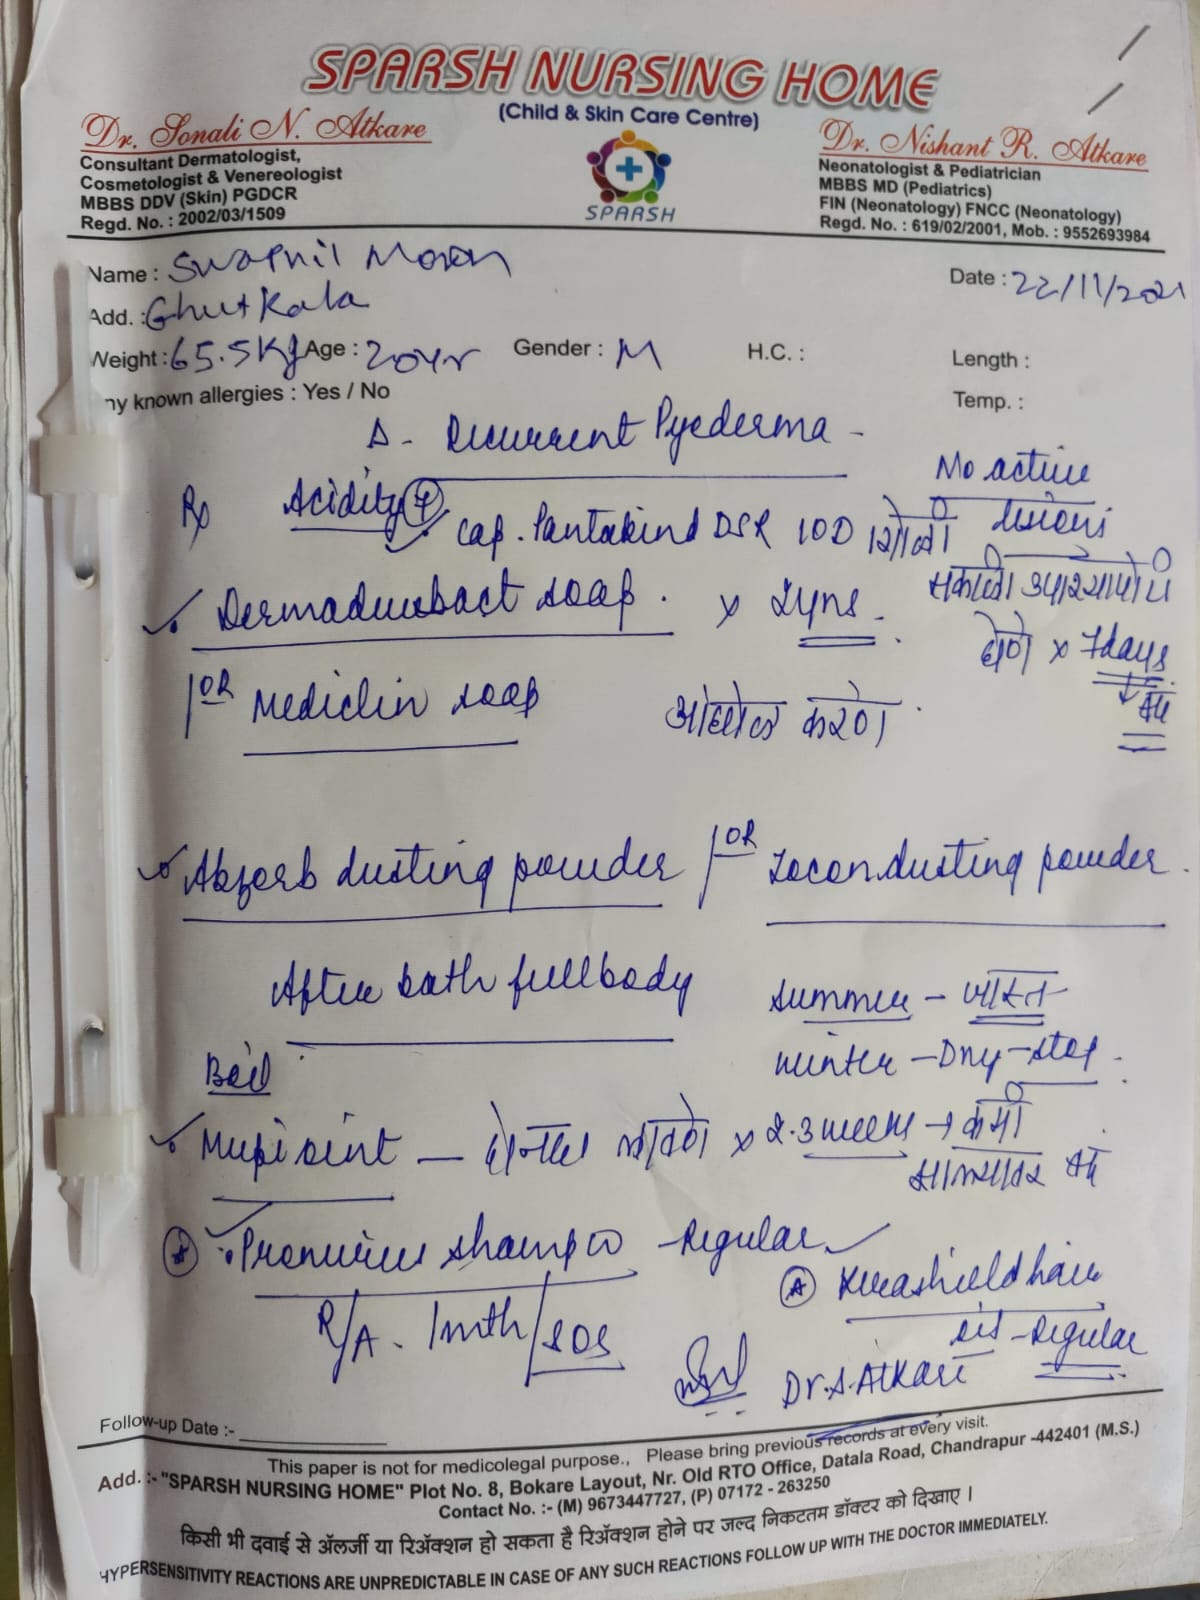 SPARSH NURSING HOME
(Child & Skin Care Centre)
Dr. Sonali N. Atkare
Consultant Dermatologist,
Cosmetologist & Venereologist
MBBS DDV (Skin) PGDCR
Regd. No. : 2002/03/1509
SPARSH
Dr. Nishant R. Atkare
Neonatologist & Pediatrician
MBBS MD (Pediatrics)
FIN (Neonatology) FNCC (Neonatology)
Regd. No. : 619/02/2001, Mob. : 9552693984
Name : Swapnil
Date : 22/11/2021
Add. : Ghutkala
Weight : 65.5kg Age : 20yr Gender : M H.C. : Length :
ny known allergies : Yes / No Temp. :
Δ - Recurrent Pyoderma -
No active
lesions
Rx Acidity + Cap. Pantakind DSR 10D
soap. x 2yrs.
x 7days
OR Mediclin soap
Abzorb dusting powder OR Zocon dusting powder.
After bath full body
summer - जास्त
winter - Dry - stop.
Boil
Mupi oint - x 2-3 weeks → कमी
shampoo - Regular
hair
- Regular
R/A. 1mth/SOS
Dr. S. Atkare
Follow-up Date :-
This paper is not for medicolegal purpose., Please bring previous records at every visit.
Add. :- "SPARSH NURSING HOME" Plot No. 8, Bokare Layout, Nr. Old RTO Office, Datala Road, Chandrapur -442401 (M.S.)
Contact No. :- (M) 9673447727, (P) 07172 - 263250
किसी भी दवाई से ॲलर्जी या रिॲक्शन हो सकता है रिॲक्शन होने पर जल्द निकटतम डॉक्टर को दिखाए ।
HYPERSENSITIVITY REACTIONS ARE UNPREDICTABLE IN CASE OF ANY SUCH REACTIONS FOLLOW UP WITH THE DOCTOR IMMEDIATELY.